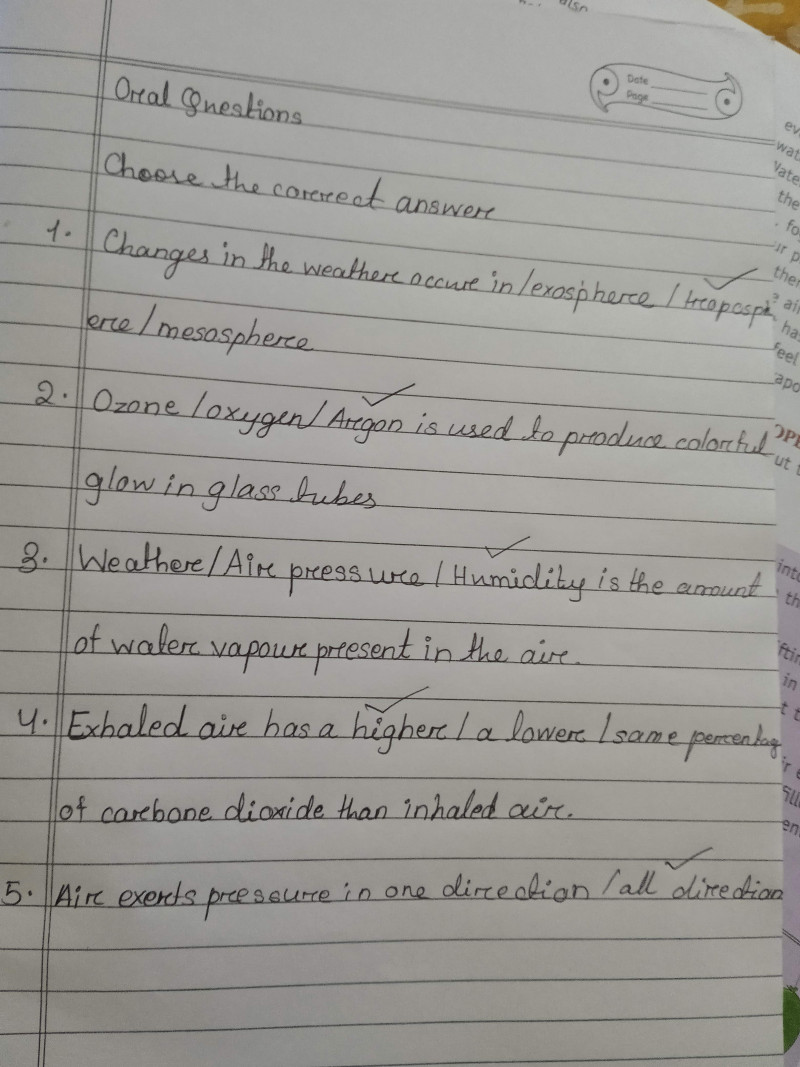 Oral Questions
Date
Page
Choose the correct answer
1. Changes in the weather occur in/exosphere / troposph
ere/mesosphere
2. Ozone/oxygen/Argon is used to produce colorful
glow in glass tubes
3. Weather/Air pressure/Humidity is the amount
of water vapour present in the air.
4. Exhaled air has a higher/a lower/same percentag
of carbone dioxide than inhaled air.
5. Air exerts pressure in one direction/all direction